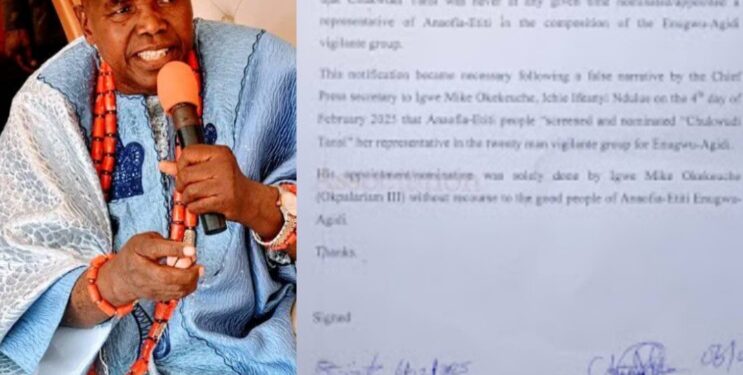 was never at any given time nominated/appointed a
representative of Ansofia-Etiti in the composition of the Enugwu-Agidi
vigilante group.
This notification became necessary following a false narrative by the Chief
Press secretary to Igwe Mike Okekeuche, Ichie Ifeanyi Ndulue on the 4th day of
February 2025 that Ansofia-Etiti people "screened and nominated "Chukwudi
her representative in the twenty man vigilante group for Enugwu-Agidi.
His appointment/nomination was solely done by Igwe Mike Okekeuche
(Okpalariam III) without recourse to the good people of Ansofia-Etiti Enugwu-
Agidi.
Thanks.
Signed